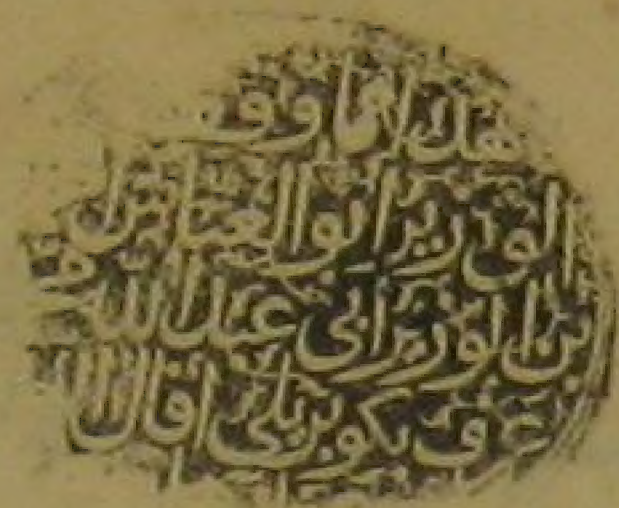 هذا مما وقف
الوزير ابو العباس
بن الوزير ابي عبد الله
عرف بكوبريلي اقال الله